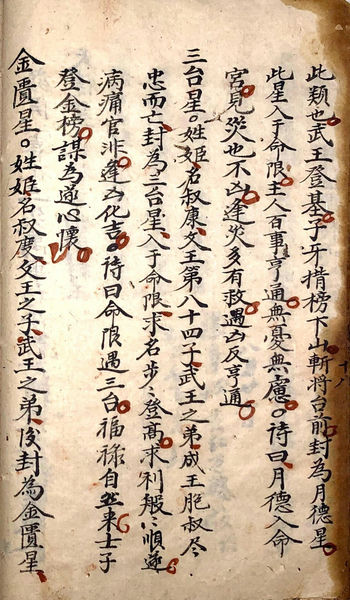 此類也武王登基子牙揹榜下山斬將台前封為月德星
此星入于命限主人百事亨通無憂無慮。詩曰月德入命
宮見災也不凶逢災多有救遇凶反亨通
三台星。姓姬名叔康文王第八十四子武王之弟成王胞叔尽
忠而亡封為三台星入于命限求名步々登高求利般々順遂
病痛官非逢凶化吉。詩曰命限遇三台福祿自然来士子
登金榜謀為遂心懷
金匱星。姓姬名叔度文王之子武王之弟後封為金匱星